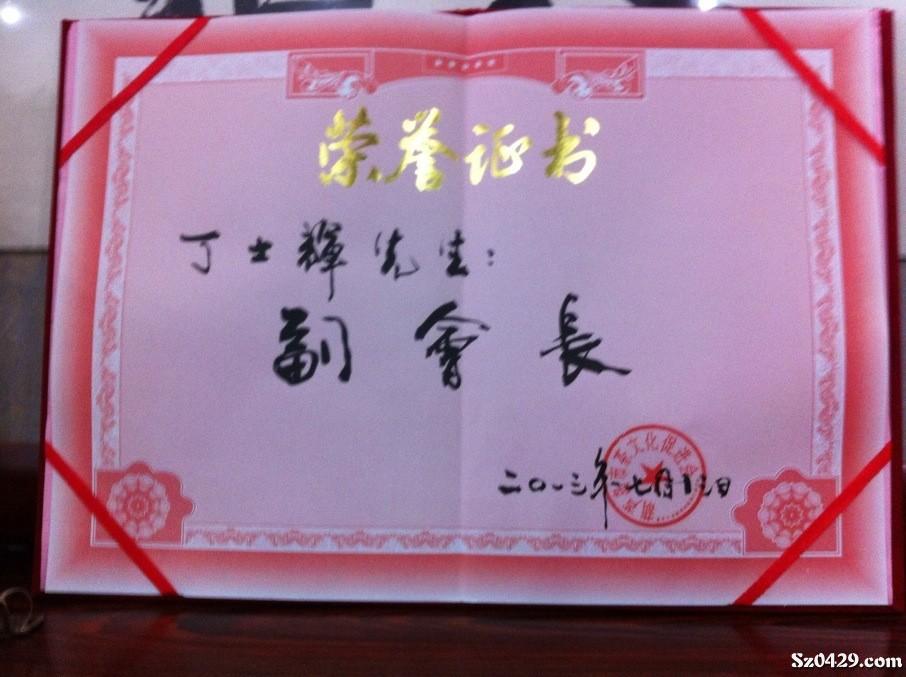 荣誉证书
丁士輝先生：
副會長
二〇一三年七月十三日
文化促进会
Sz0429.com